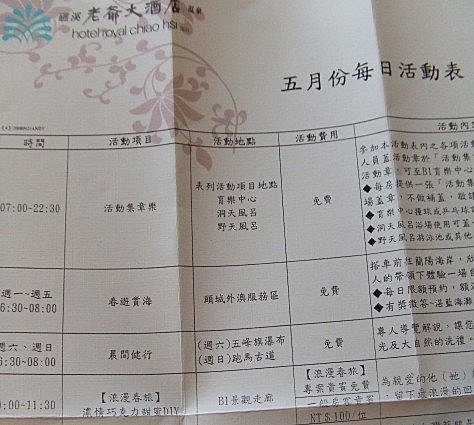 礁溪 老爺大酒店 溫泉
hotel royal chiao hsi
五月份每日活動表
時間 活動項目 活動地點 活動費用 活動內
07:00~22:30
活動集章樂
表列活動項目地點
育樂中心
洞天風呂
野天風呂
免費
參加本活動表內之各項活動
人員蓋活動章於「活動集
活動章，可至B1育樂中心
◆每房提供一張「活動集
場蓋章，不做補蓋，敬請
◆洞天風呂浴場使用可蓋
◆野天風呂游泳池或其他
週一~週五
6:30~08:00
春遊賞海
頭城外澳服務區
免費
搭車前往蘭陽海岸，欣
人的帶領下體驗一場
◆每日限額預約，額滿
◆有獎徵答~湛藍海灘
週六、週日
6:30~08:00
晨間健行
(週六)五峰旗瀑布
(週日)跑馬古道
免費
專人導覽解說，讓您
光及大自然的洗禮，
0:00~11:30
【浪漫春旅】
濃情巧克力甜蜜DIY
B1景觀走廊
【浪漫春旅】
專案貴賓免費
一般房客貴賓
NT$100/位
為親愛的他（她）
留下最浪漫的回